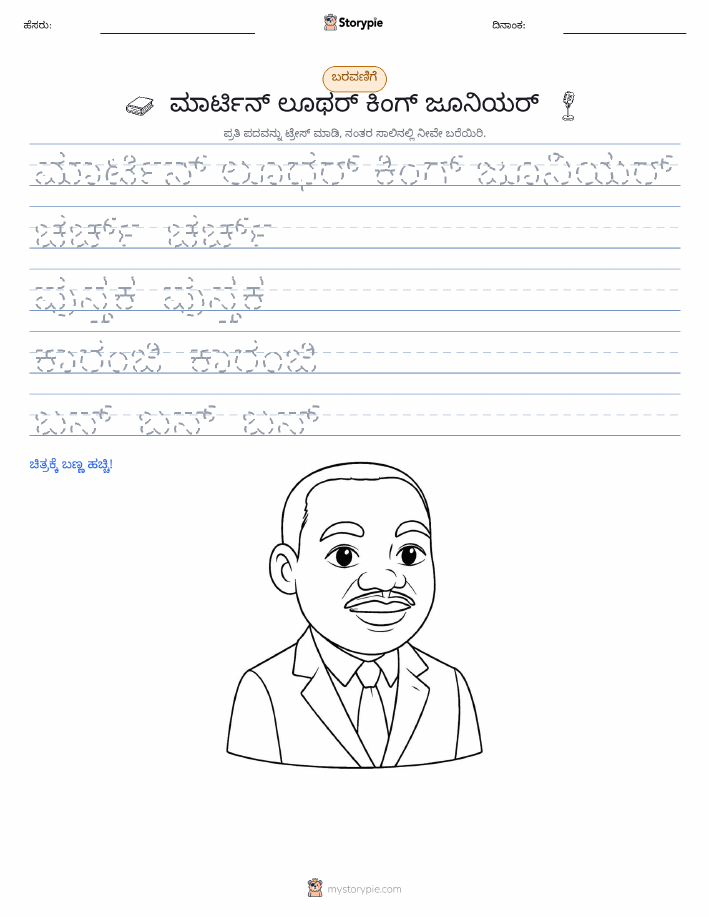 ಹೆಸರು:
Storypie
ದಿನಾಂಕ:
ಬರವಣಿಗೆ
ಮಾರ್ಟಿನ್ ಲೂಥರ್ ಕಿಂಗ್ ಜೂನಿಯರ್
ಪ್ರತಿ ಪದವನ್ನು ಟ್ರೇಸ್ ಮಾಡಿ, ನಂತರ ಸಾಲಿನಲ್ಲಿ ನೀವೇ ಬರೆಯಿರಿ.
ಮಾರ್ಟಿನ್ ಲೂಥರ್ ಕಿಂಗ್ ಜೂನಿಯರ್
ಚರ್ಚ್ ಚರ್ಚ್
ಪುಸ್ತಕ ಪುಸ್ತಕ
ಕಾರಂಜಿ ಕಾರಂಜಿ
ಬಸ್ ಬಸ್ ಬಸ್
ಚಿತ್ರಕ್ಕೆ ಬಣ್ಣ ಹಚ್ಚಿ!
mystorypie.com